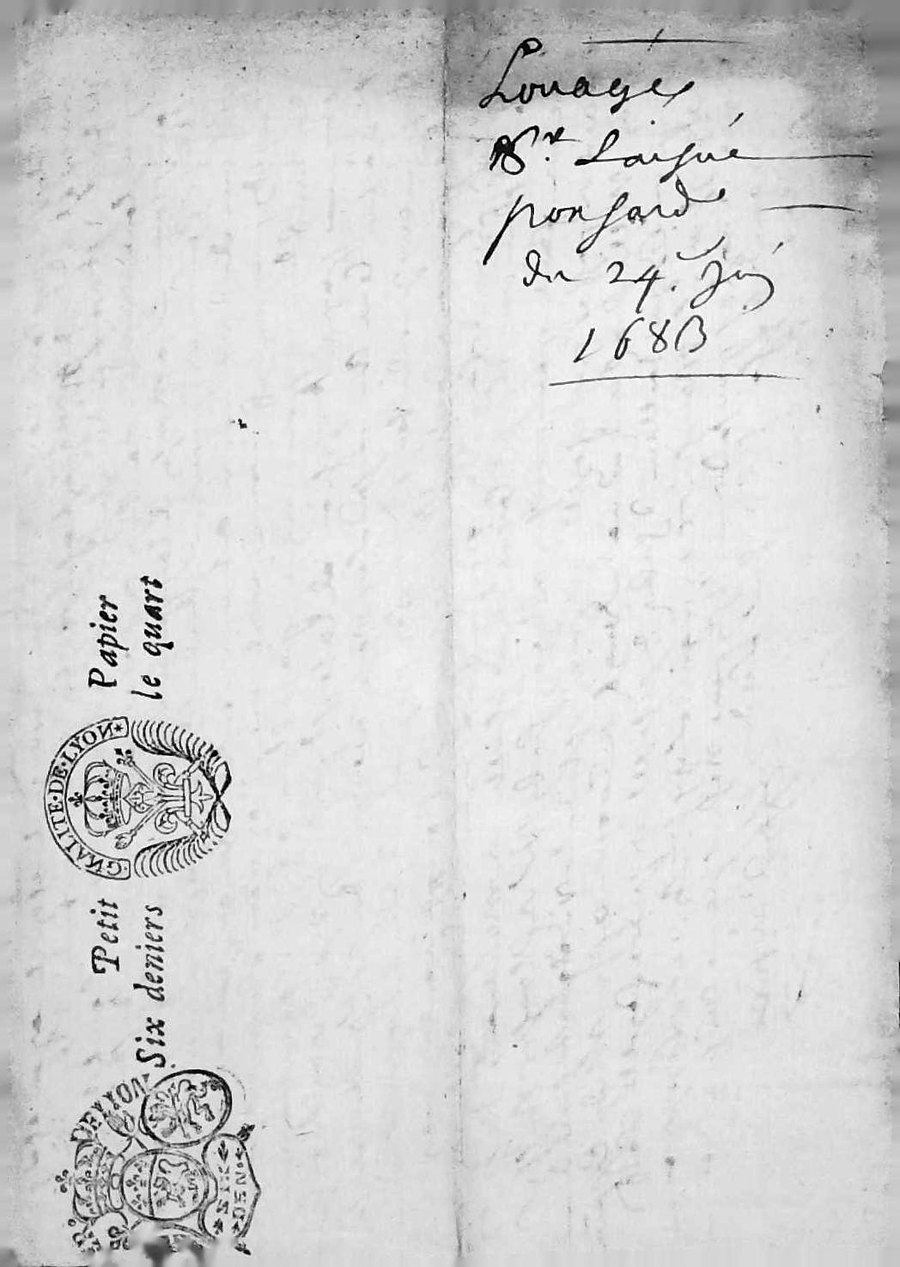 Louage
Sr. Laisné
ponsard
du 24. Juin
1683
Papier
le quart
GNALITE·DE·LYON
Petit
Six deniers
DE LYON
SIX
DEN